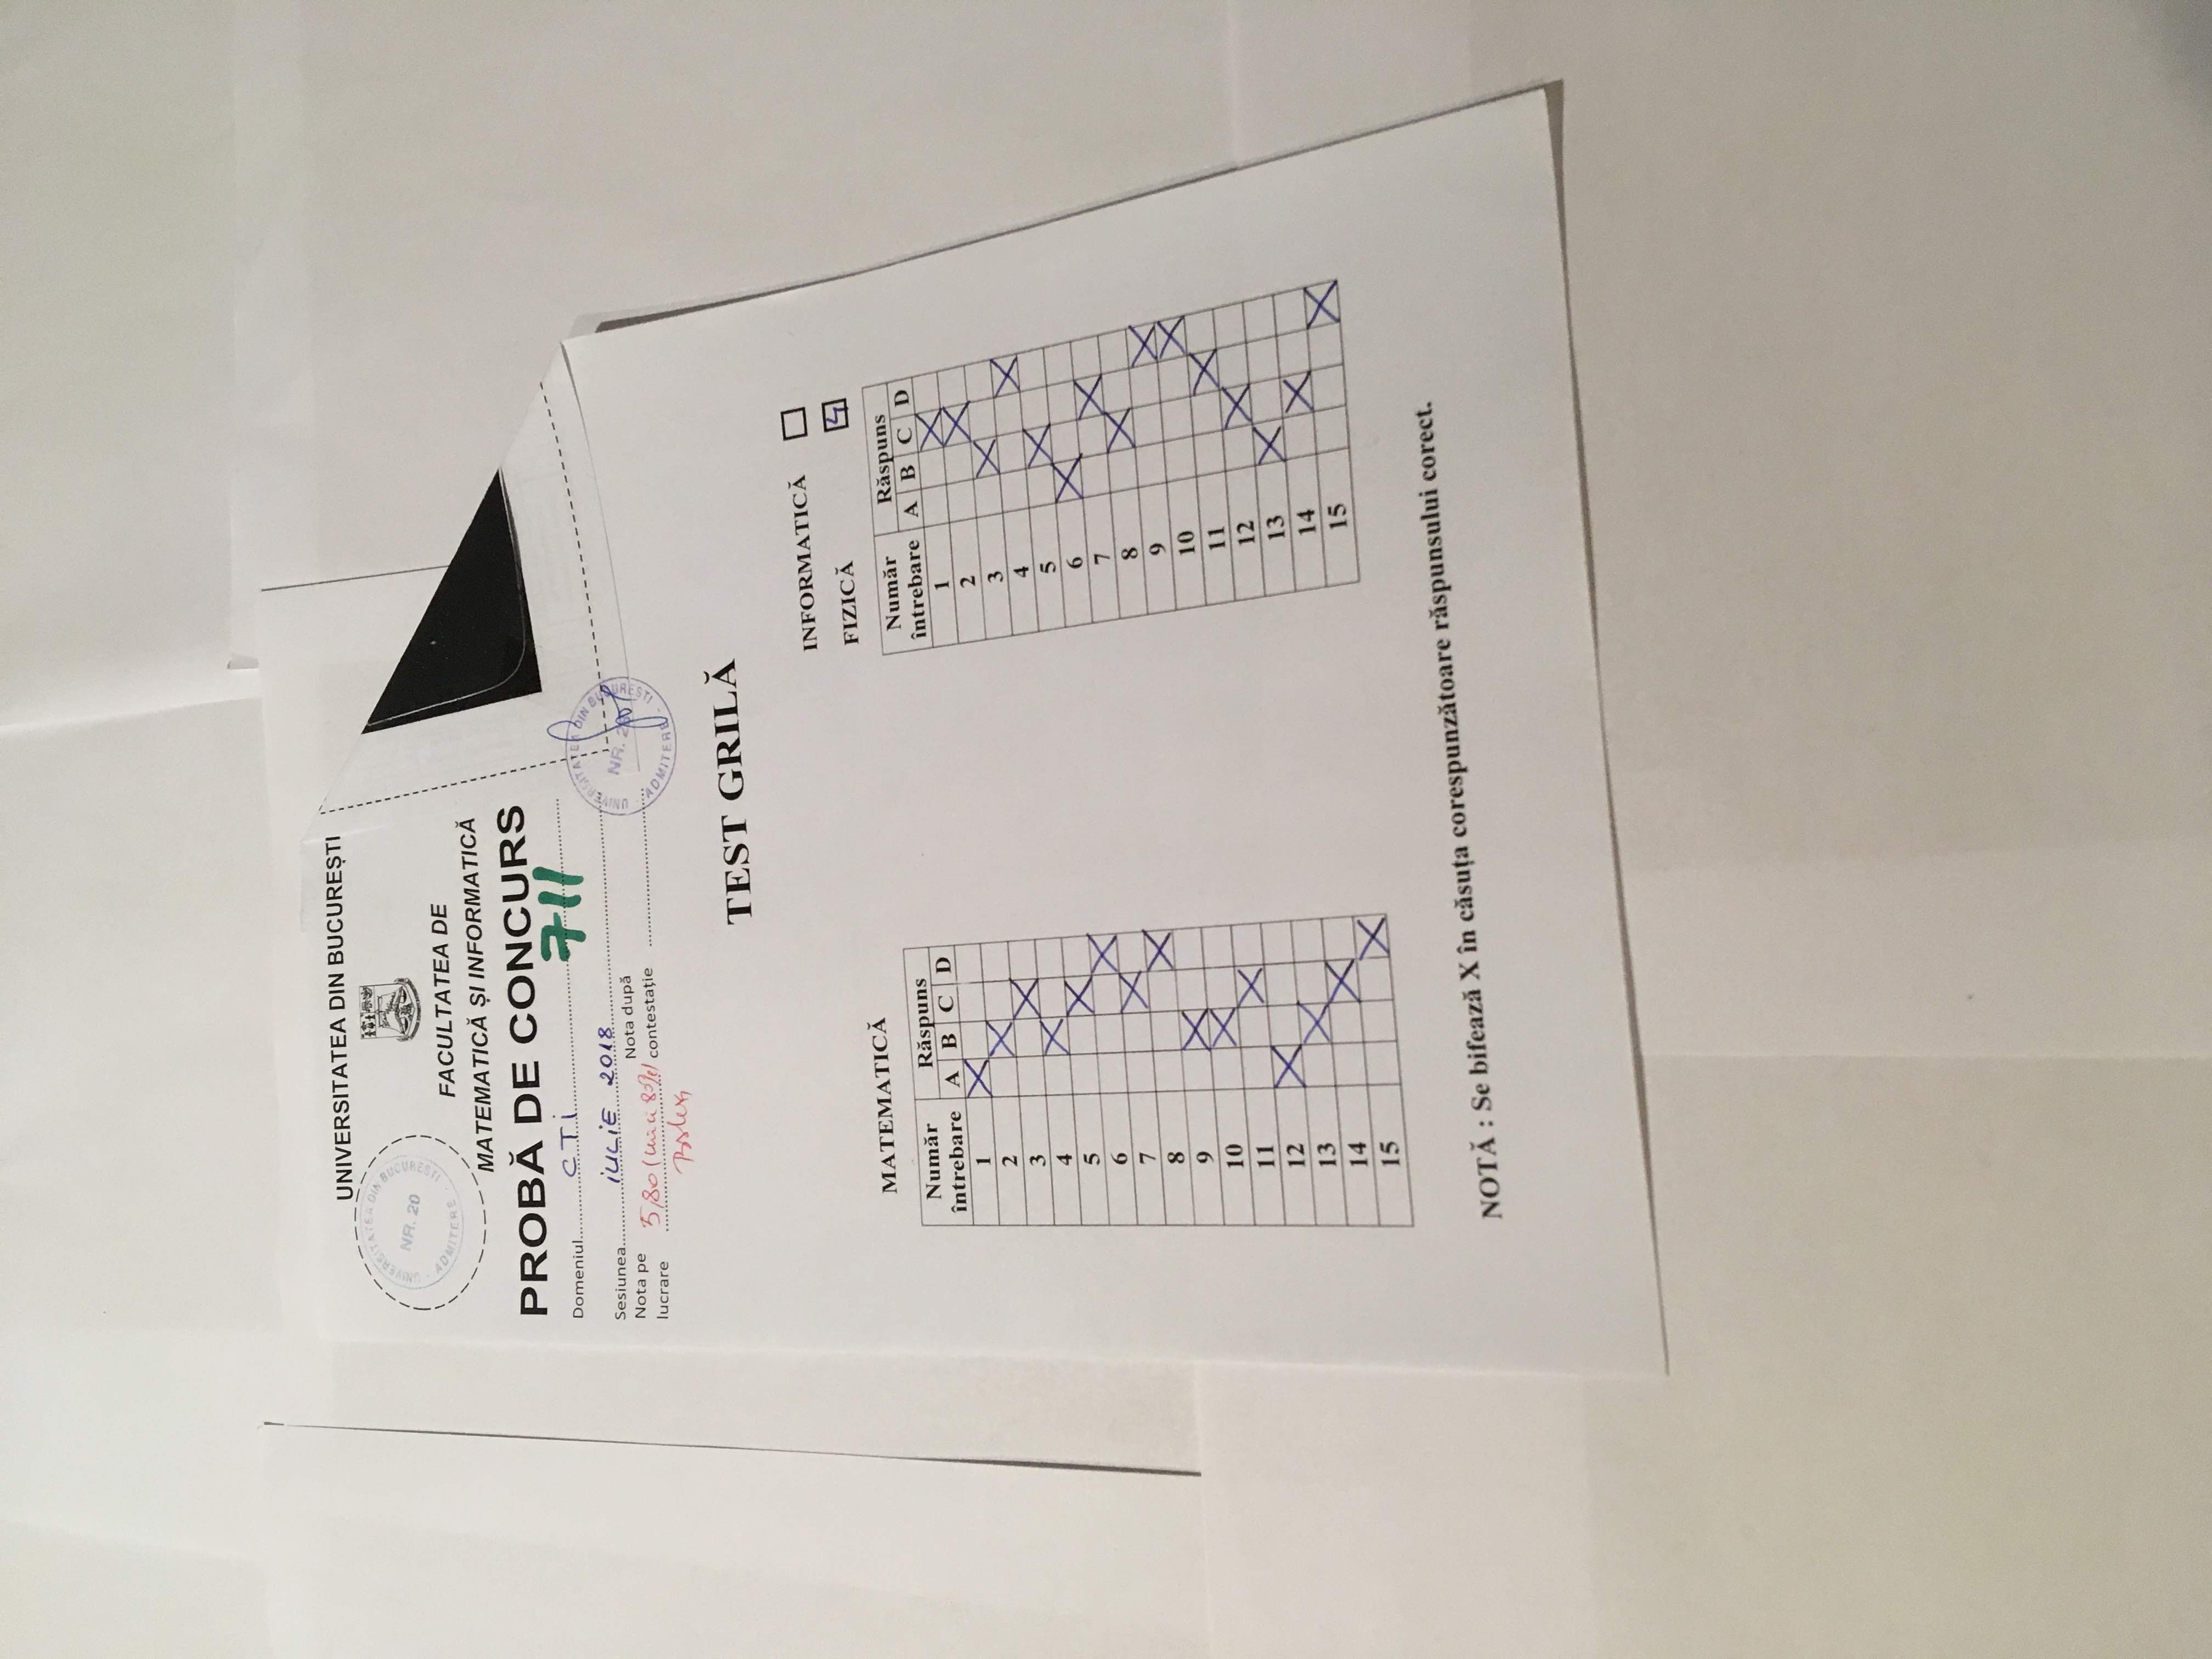 UNIVERSITATEA DIN BUCUREȘTI
UNIVERSITATEA DIN BUCUREȘTI
NR. 20
ADMITERE
FACULTATEA DE
MATEMATICĂ ȘI INFORMATICĂ
PROBĂ DE CONCURS
711
Domeniul CTI
Sesiunea IULIE 2018
Nota pe lucrare 5,80
Nota după contestație
UNIVERSITATEA DIN BUCUREȘTI
NR. 20
ADMITERE
TEST GRILĂ
INFORMATICĂ
FIZICĂ
MATEMATICĂ
Număr întrebare Răspuns
A B C D
1
2
3
4
5
6
7
8
9
10
11
12
13
14
15
Număr întrebare Răspuns
A B C D
1
2
3
4
5
6
7
8
9
10
11
12
13
14
15
NOTĂ : Se bifează X în căsuța corespunzătoare răspunsului corect.